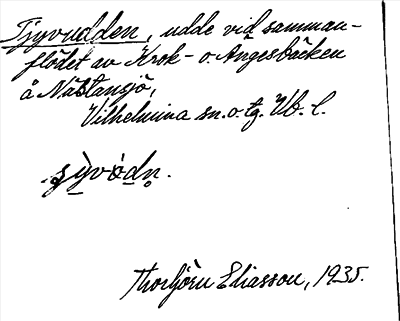 Tjyvudden, udde vid samman-
flödet av Krok- o. Angesbäcken
å Nästansjö,
Vilhelmina sn. o. tg. Vb. l.
Thorbjörn Eliasson, 1935.